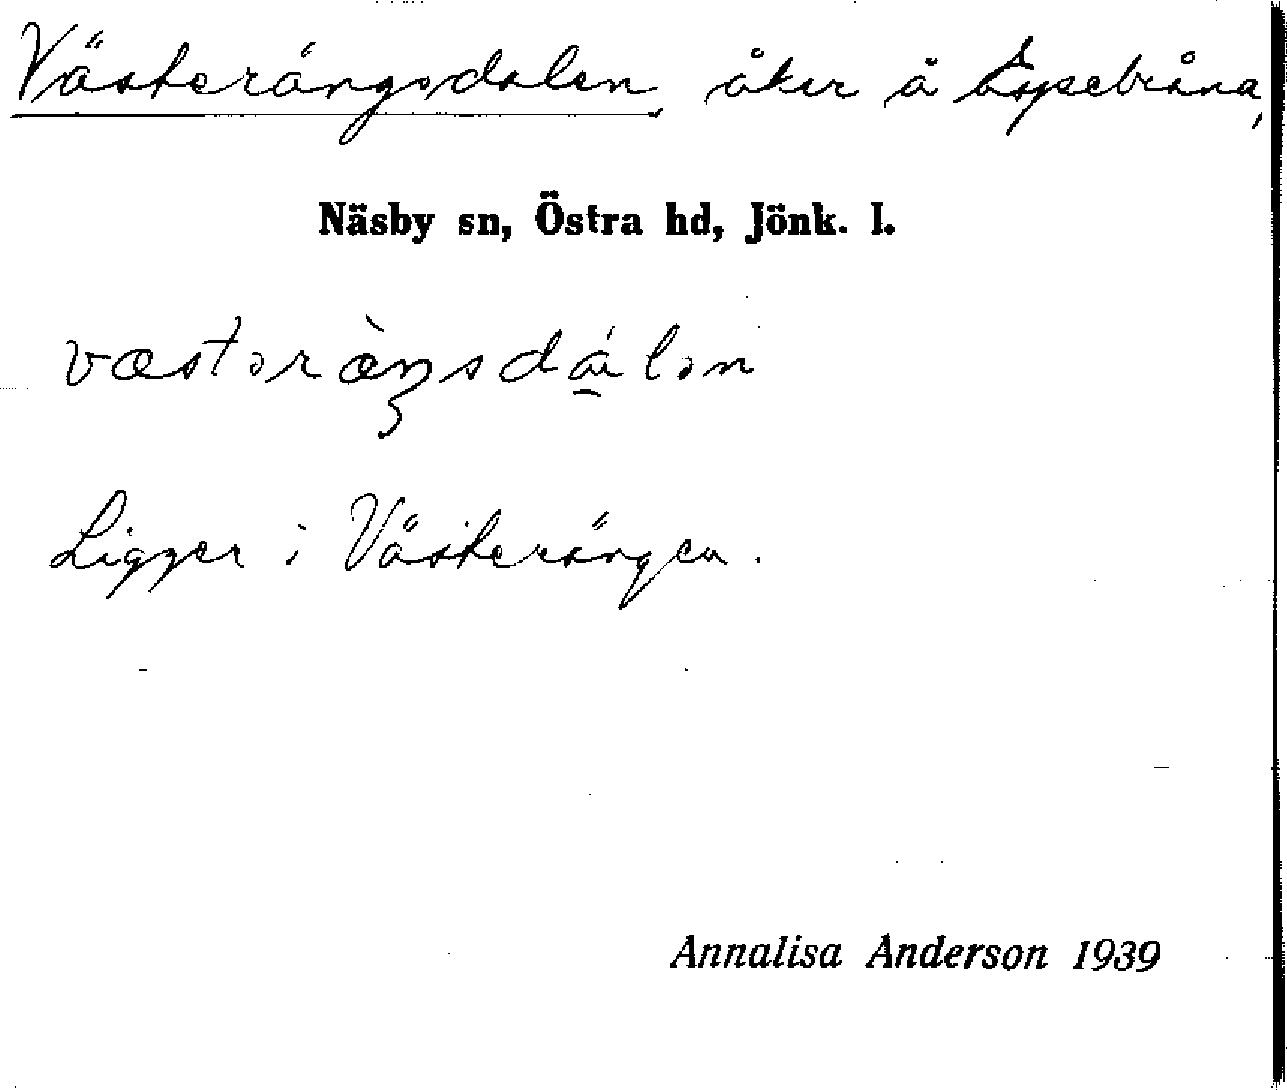 Västerängsdalen, åker å Espebråna,
Näsby sn, Östra hd, Jönk. l.
Ligger i Västerängen.
Annalisa Anderson 1939